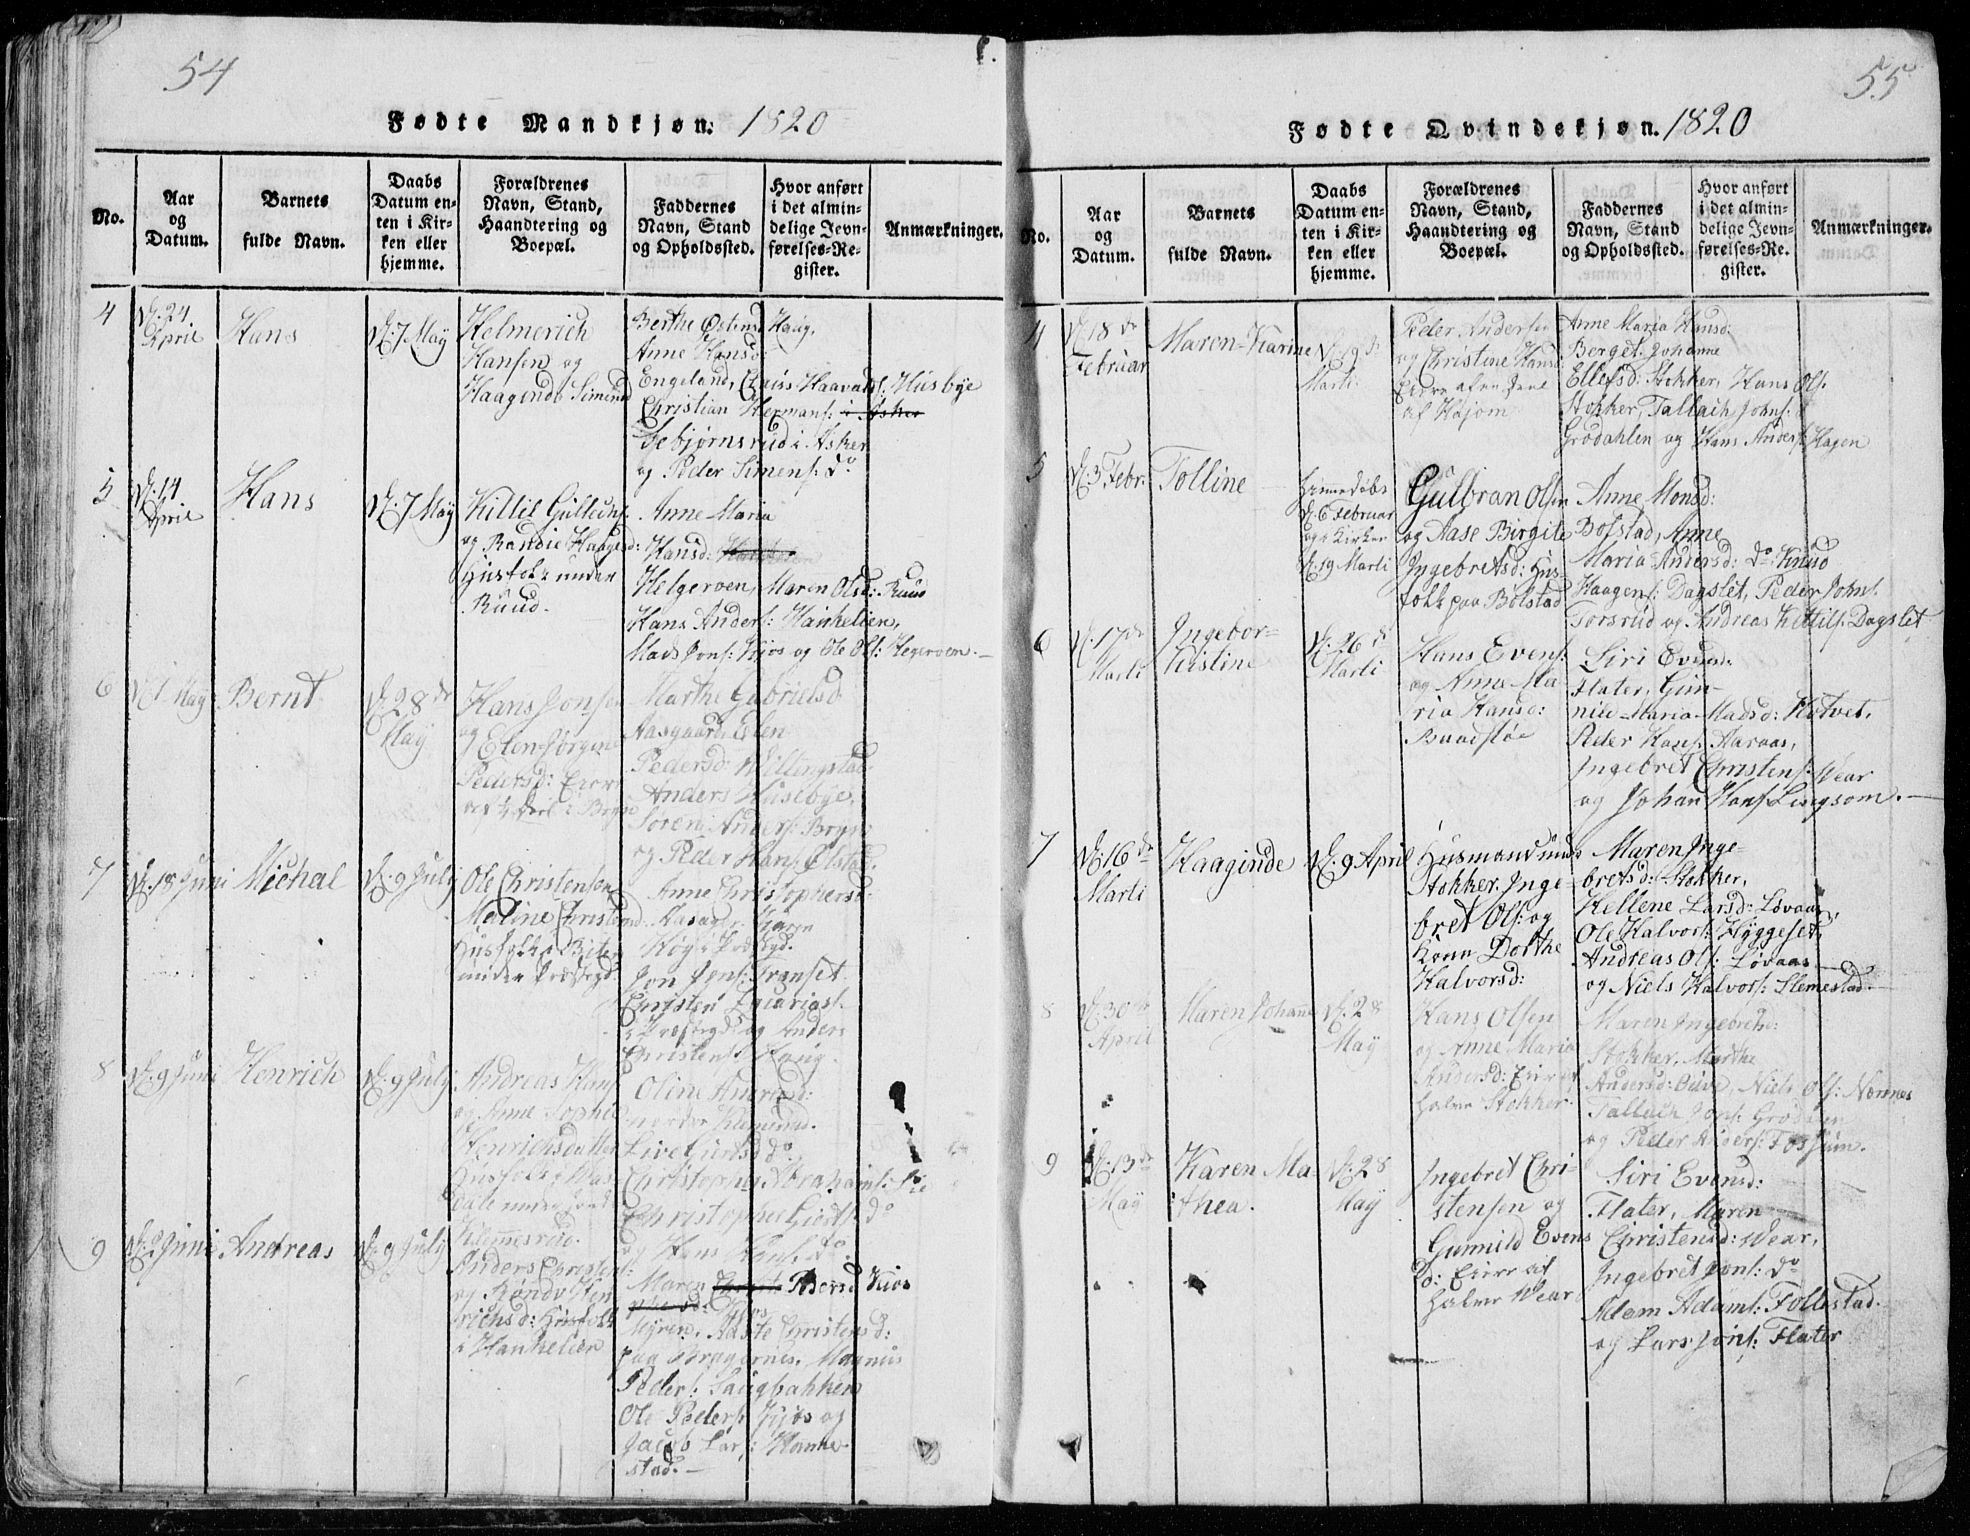 54
Fødte Mandkjøn. 1820
No.
Aar
og
Datum.
Barnets
fulde Navn.
Daabs
Datum en-
ten i Kir-
ken eller
hjemme.
Forældrenes
Navn, Stand,
Haandtering og
Boepæl.
Faddernes
Navn, Stand
og Opholdssted.
Hvor anført
i det almin-
delige Jevn-
førelses-Re-
gister.
Anmærkninger.
4
24
April
Hans
7 May
Helmerich
Hansen og
Haagende Simensd
Berthe Østensd Haug,
Anne Hansd:
Engeland, Claus Haavalds: Husbye
Christian Hermans: i Asker
Gebjørnsrud i Asker
og Peder Simens: do
5
14
April
Hans
7 May
Killil Gulluchs:
og Randie Haagensd:
Husfolk under
Ruud.
Anne Maria
Hansd:
Helgeroen, Maren Olsd: Ruud
Hans Anders: Hankelien,
Mads Jons: Kjøs og Ole Ols: Hegeroen.
6
1 May
Bernt
28 de
May
Hans Jonsen
og Elen Jørgine
Pedersd: Eiere
i Bryn
Marthe Gabrielsd
Aasgaard, Elen
Pedersd: Willingstad
Anders Husebye,
Søren Anders: Bryn
og Peder Hans: Elstad.
7
18 Juni
Michal
9 July
Ole Christensen
Maline Christensd
Husfolk i
under Præstegd:
Anne Christophersd:
Aasager, Karen
Høg i Præstgd.
Jon Jons: Transet
Christen Zacarias:
i Præstegd og Anders
Christens: Haug.
8
9 Juni
Henrich
9 July
Andreas Hans:
og Anne Sophie
Henrichsdatter
Husfolk i
Klemmesrud.
Oline Amundsd:
nordre Klemsrud.
Live Giertsd do
Christopher Abrahams: Lie
Christopher Gierts: do
og Hans Hans: do
9
2 Juni
Andreas
9 July
Anders Christens:
og Rønov Hen
richsd: Husfolk
i Hankelien
Maren Kiøs
Myren, Aaste Christensd:
paa Bragernes, Magnus
Peders: Saugbakken
Ole Peders: Kjøs og
Jacob Lars: Hanne-
stad.
55
Fødte Qvindekjøn. 1820
No.
Aar
og
Datum.
Barnets
fulde Navn.
Daabs
Datum en-
ten i Kir-
ken eller
hjemme.
Forældrenes
Navn, Stand,
Haandtering og
Boepæl.
Faddernes
Navn, Stand
og Opholdssted.
Hvor anført
i det almin-
delige Jevn-
førelses-Re-
gister.
Anmærkninger.
4
18 de
Februar
Maren Karine
19 de
Marti
Peder Andersen
og Christine Hansd:
Anne Maria Hansd:
Berget, Johanne
Ellefsd: Stokker, Hans Ols:
Stokker, Tallach Johns:
Grodahlen og Hans Anders: Hagen
5
3 Febr.
Tolline
hiemedøbt
6 Februar
og i Kirken
19 Marti
Gulbran Olsen
og Aase Birgite
Ingebretsd: Hus-
folk paa Bolstad
Anne Monsd:
Bolstad, Anne
Maria Andersd: do Knud
Haagens: Dagslet, Peder Johns:
Torsrud og Andreas Kittils: Dagslet
6
17 de
Marti
Ingebor-
Kistine
26 de
Marti
Hans Evens:
og Anne Ma
ria Hansd:
Siri Evensd:
Flater, Gun-
nild Maria Madsd: Hotvet,
Peder Hans: Aaraas,
Ingebret Christens: Wear
og Johan Hans: Lingsom.
7
16 de
Marti
Haaginde
9 April
Husmand under
Stokker Inge-
bret Ols: og
Kone Dorthe
Halvorsd:
Maren Inge-
bretsd: Stokker,
Kellene Larsd: Løvaas,
Ole Halvors: Hyggeset,
Andreas Ols: Løvaas
og Niels Halvors: Slemestad.
8
30 de
April
Maren Johanne
28
May
Hans Olsen
og Anne Maria
Andersd: Eiere af
halve Stokker.
Maren Ingebretsd:
Stokker, Marthe
Andersd: Niels Ols: Nærnes
Tallach Jons: Grodalen
og Peder Anders: Fossum.
9
13 de
May
Karen Ma-
thea.
28
May
Ingebret Chri-
stensen og
Gunnild Evens
D: Eiere af
halve Wear
Siri Evensd:
Flater, Maren
Christensd: Wear,
Ingebret Jons: do
Adam Adams: Follestad.
og Lars Jons: Flater